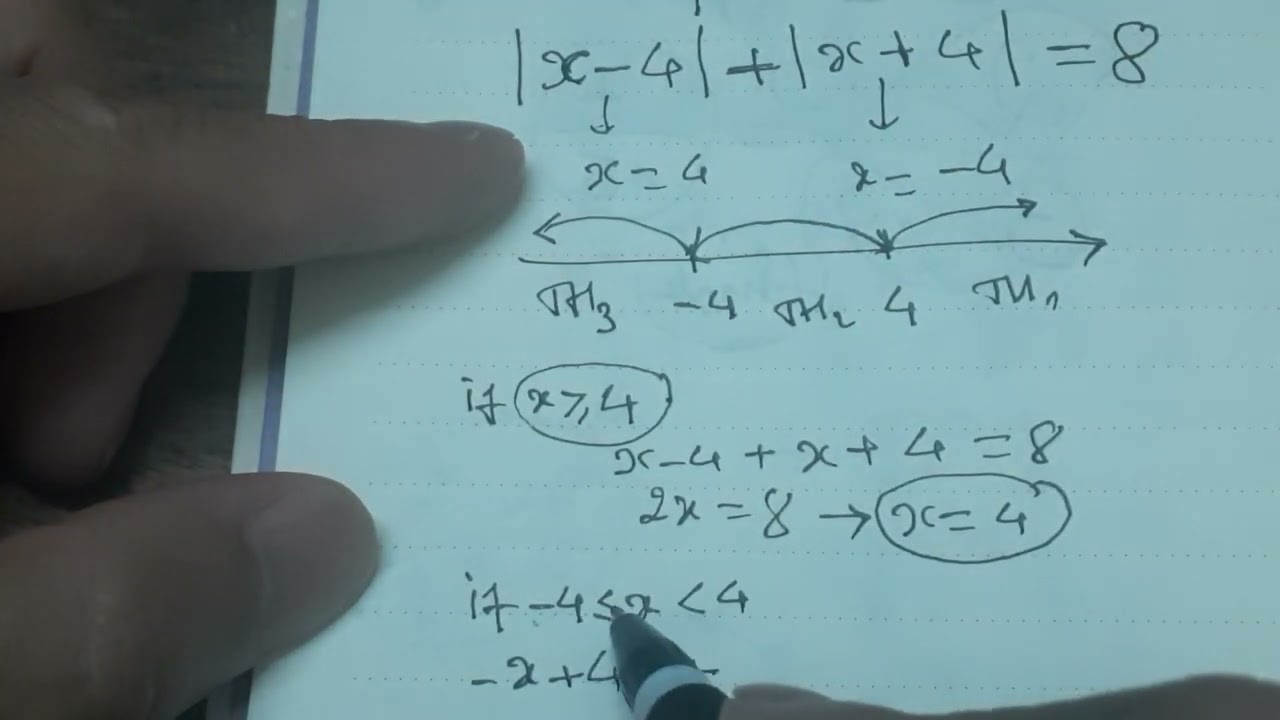 |x-4|+|x+4|=8
↓ ↓
x=4 x=-4
TH3 -4 TH2 4 TH1
if x≥4
x-4+x+4=8
2x=8→x=4
if -4≤x<4
-x+4